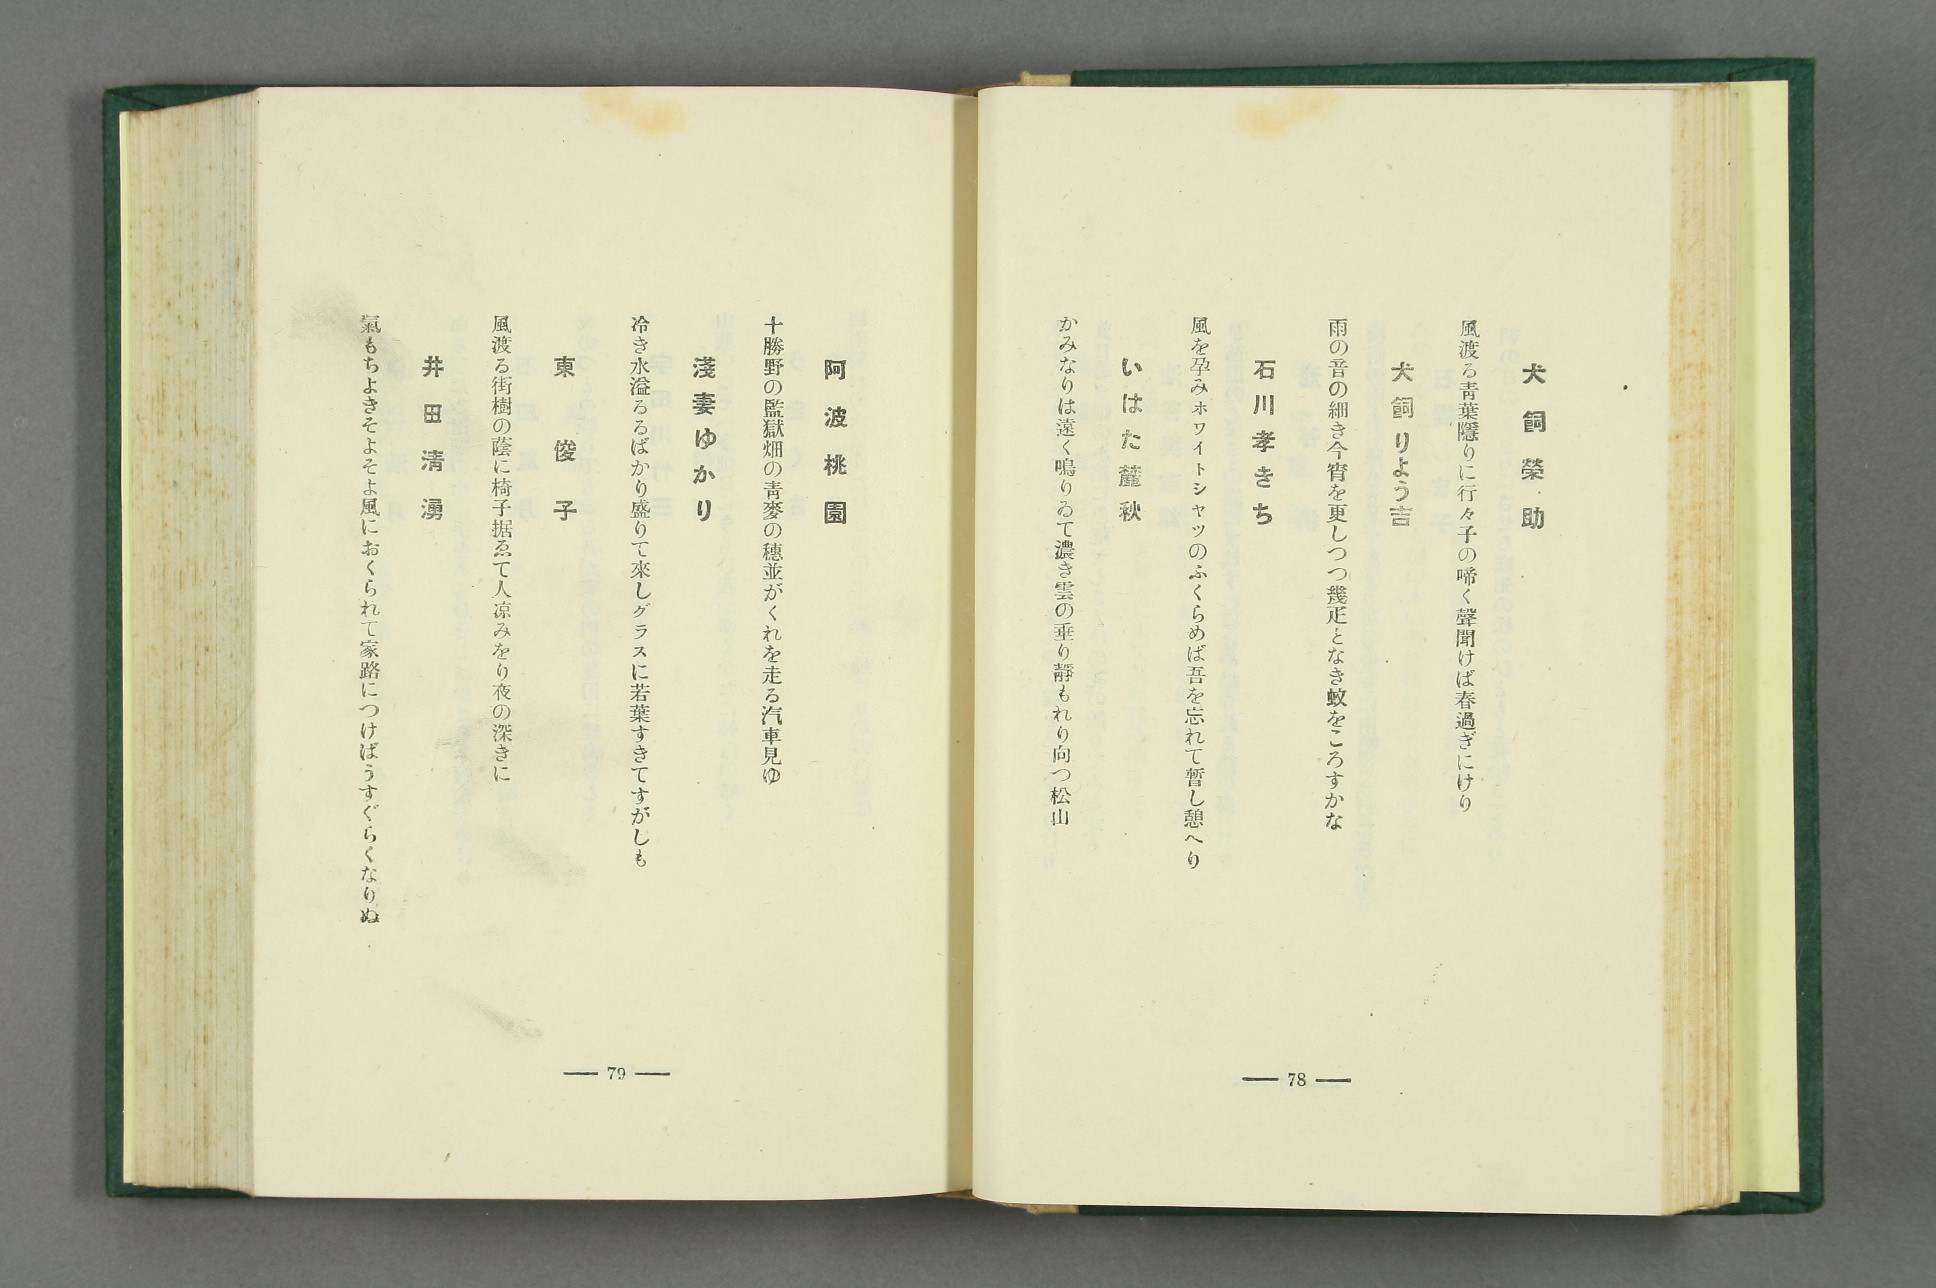 犬飼榮助
風渡る靑葉隱りに行々子の啼く聲聞けば春過ぎにけり
犬飼りよう吉
雨の音の細き今宵を更しつつ幾疋となき蚊をころすかな
石川孝きち
風を孕みホワイトシヤツのふくらめば吾を忘れて暫し憩へり
いはた麓秋
かみなりは遠く鳴りゐて濃き雲の垂り靜もれり向つ松山
— 78 —
阿波桃園
十勝野の監獄畑の靑麥の穗並がくれを走る汽車見ゆ
淺妻ゆかり
冷き水溢るるばかり盛りて來しグラスに若葉すきてすがしも
東俊子
風渡る街樹の蔭に椅子据ゑて人凉みをり夜の深きに
井田淸湧
氣もちよきそよそよ風におくられて家路につけばうすぐらくなりぬ
— 79 —